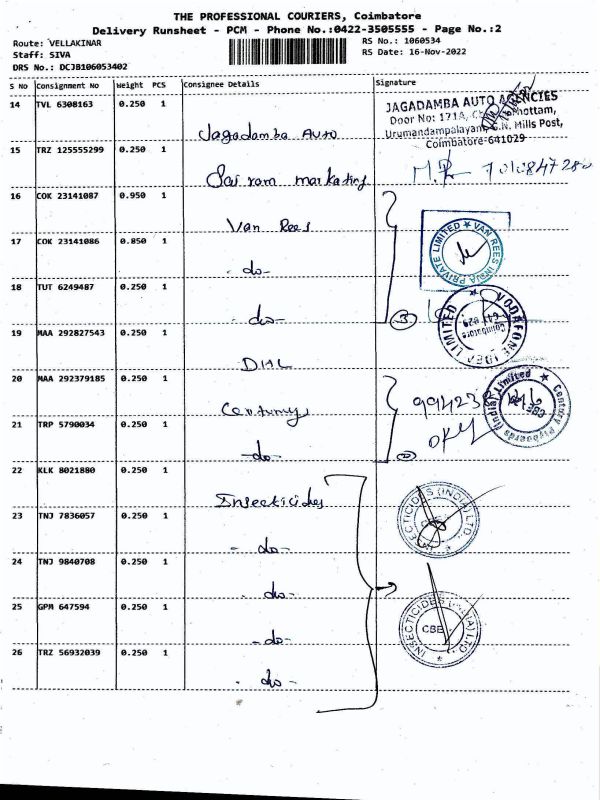 THE PROFESSIONAL COURIERS, Coimbatore
Delivery Runsheet - PCM - Phone No.:0422-3505555 - Page No.:2
Route: VELLAKINAR RS No.: 1060534
Staff: SIVA RS Date: 16-Nov-2022
DRS No.: DCJB106053402
S No Consignment No Weight PCS Consignee Details Signature
14 TVL 6308163 0.250 1 Jagadamba Auto
JAGADAMBA AUTO AGENCIES
Door No: 171A,
Urumandampalayam, G.N. Mills Post,
Coimbatore-641029
15 TRZ 125555299 0.250 1 Sai ram marketing
16 COK 23141087 0.950 1 Van Rees
VAN REES INDIA PRIVATE LIMITED
17 COK 23141086 0.850 1 - do-
18 TUT 6249487 0.250 1 - do- 3
VODAFONE IDEA LIMITED
Coimbatore
19 MAA 292827543 0.250 1 DHL
20 MAA 292379185 0.250 1 Century
Century Plyboards (India) Limited
CBE
21 TRP 5790034 0.250 1 -do-
22 KLK 8021880 0.250 1 Insecticides
INSECTICIDES (INDIA) LTD.
23 TNJ 7836057 0.250 1 - do-
24 TNJ 9840708 0.250 1 - do-
25 GPM 647594 0.250 1 -do-
INSECTICIDES (INDIA) LTD.
CBE
26 TRZ 56932039 0.250 1 - do-